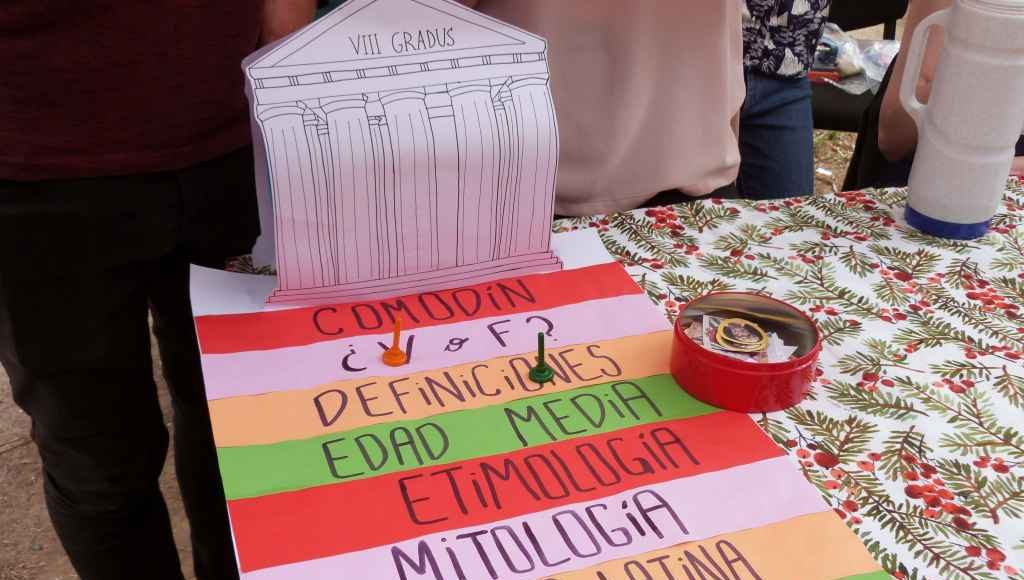 VIII GRADUS
COMODÍN
¿V o F?
DEFINICIONES
EDAD MEDIA
ETIMOLOGÍA
MITOLOGÍA
LATINA